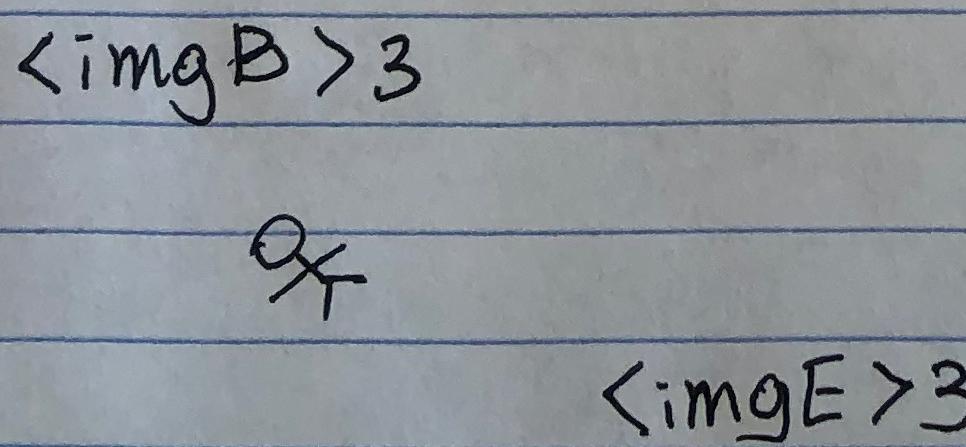 <imgB>3
<imgE>3